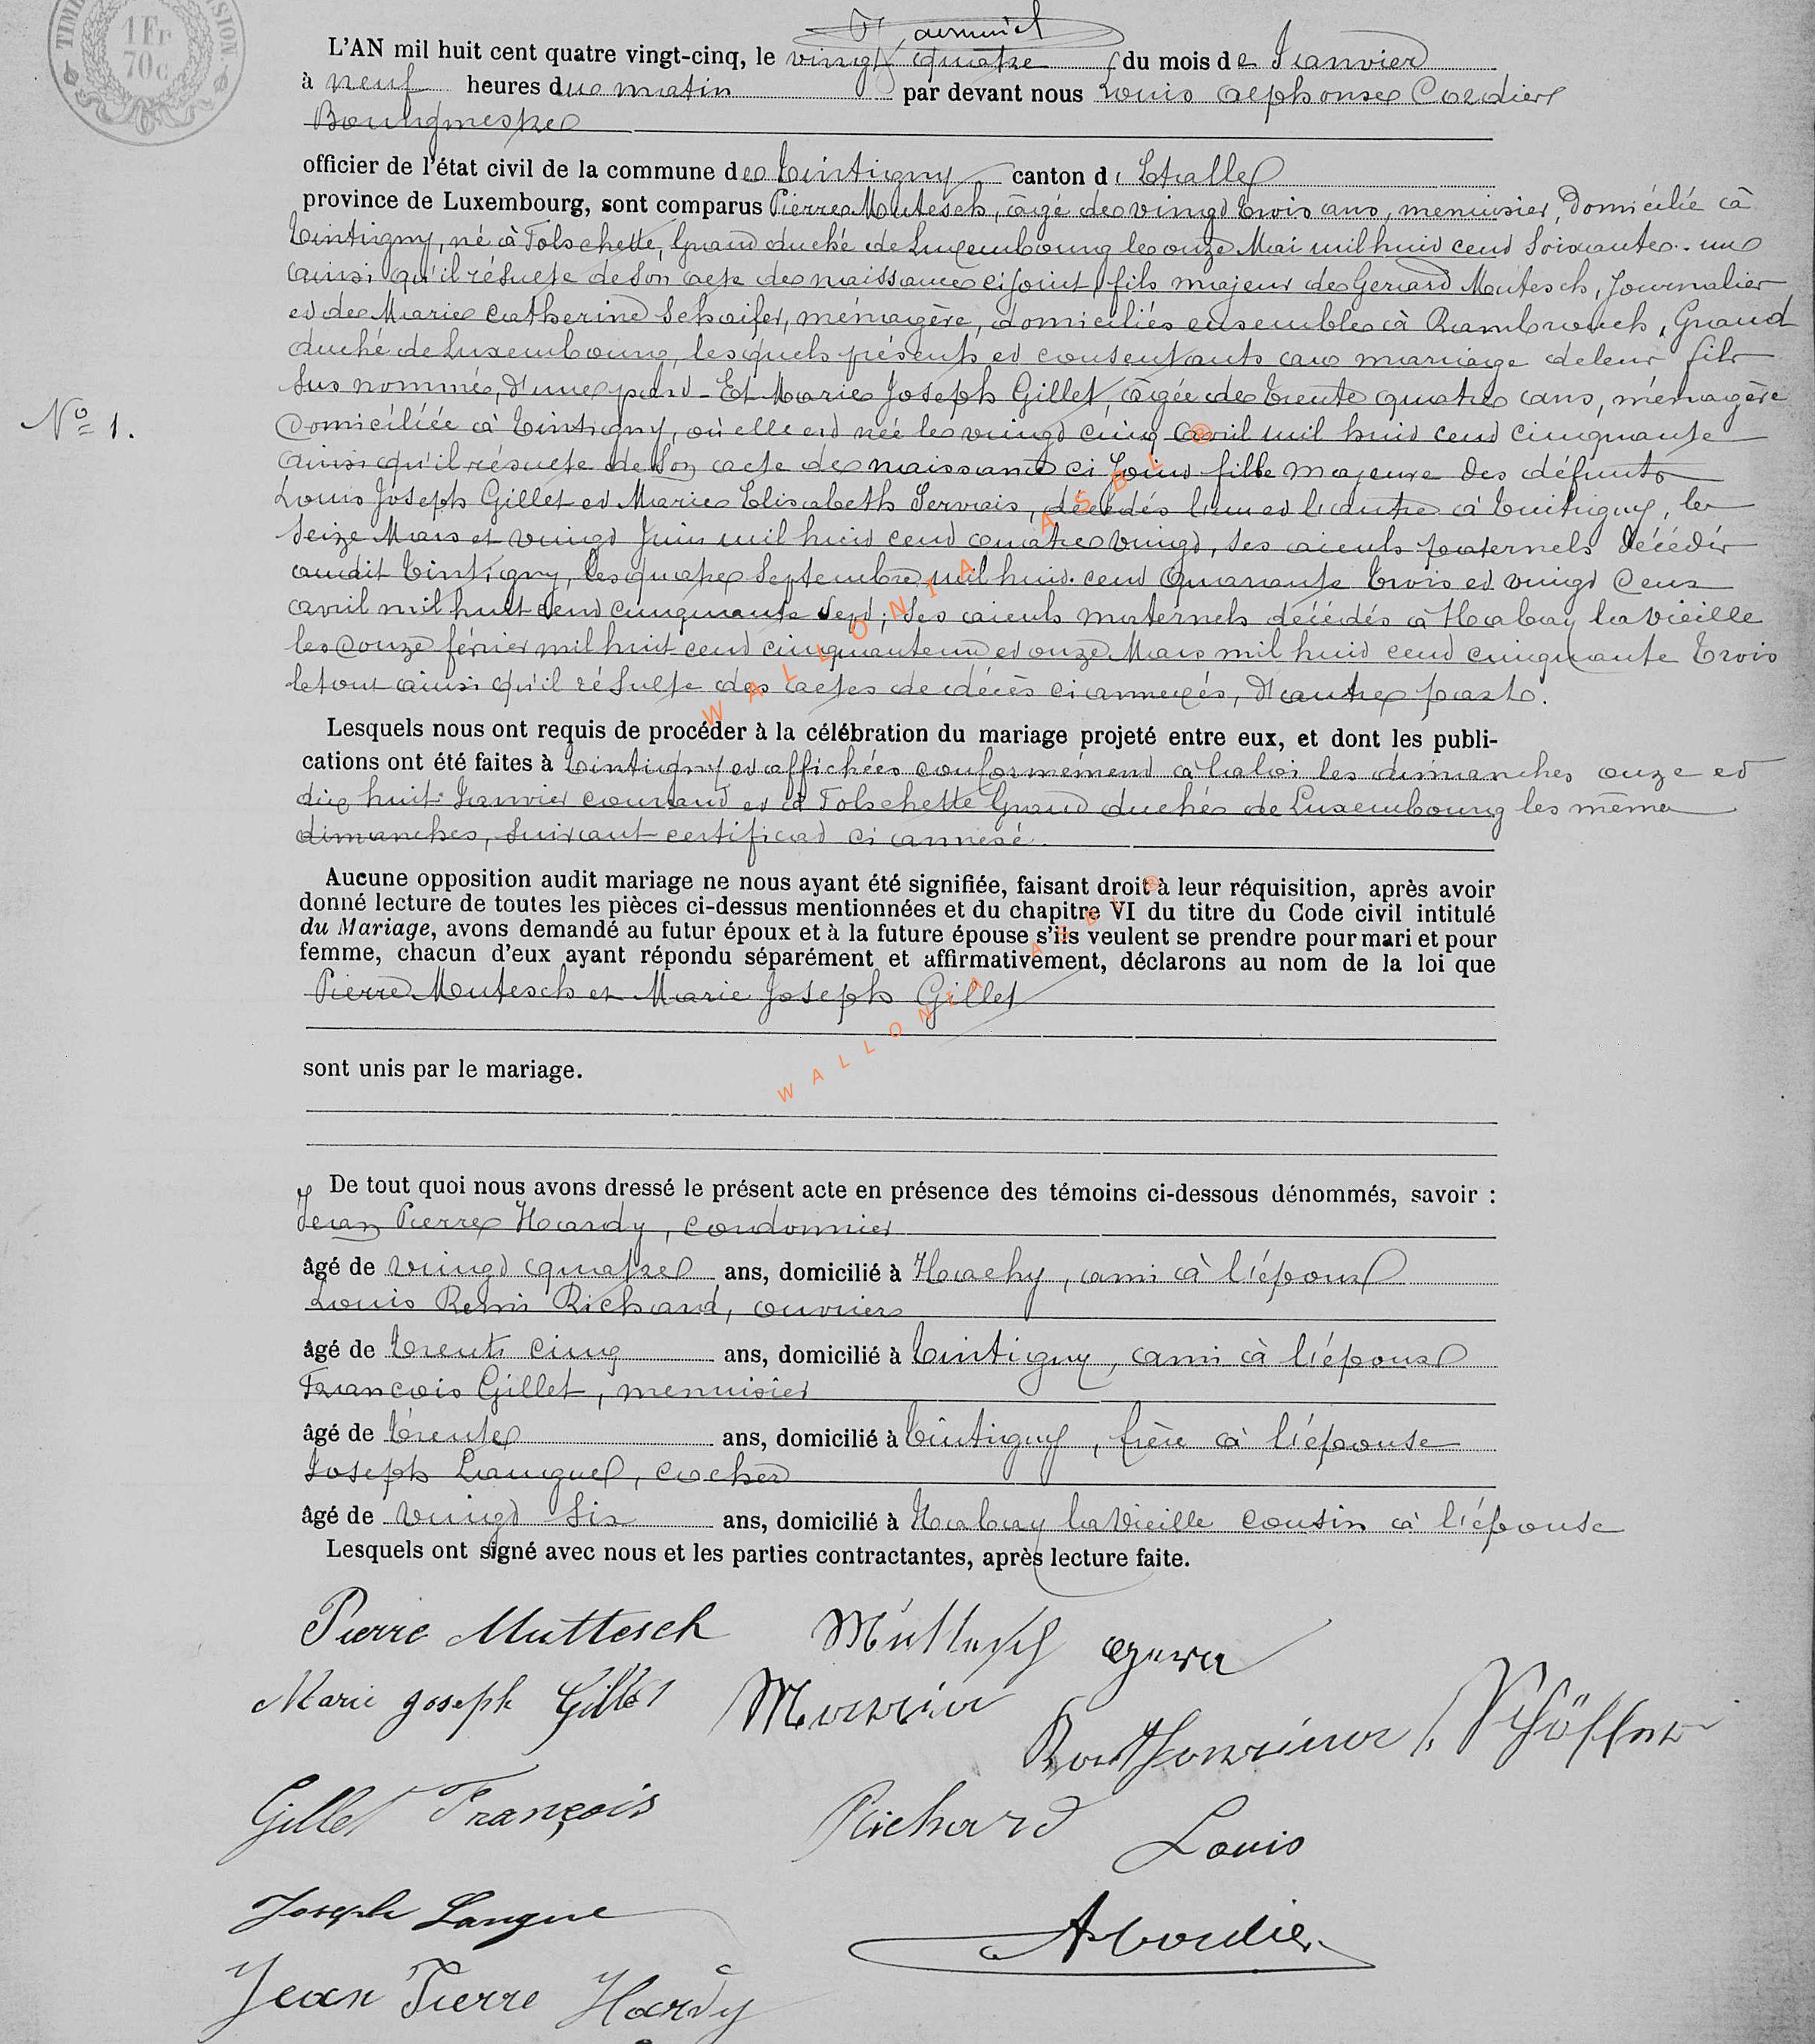 TIMB
SION
1 Fr
70c
L'AN mil huit cent quatre vingt-cinq, le vingt quatre du mois de Janvier
à neuf heures du matin par devant nous Louis Alphonse Cordier
Bourgmestre
officier de l'état civil de la commune de Tintigny canton d'Etalle
province de Luxembourg, sont comparus Pierre Mutesch, âgé de vingt trois ans, menuisier, Domicilié à
Tintigny, né à Folschette, Grand duché de Luxembourg le onze Mai mil huit cent Soixante-un
ainsi qu'il résulte de son acte de naissance ci joint, fils majeur de Gerard Mutesch, Journalier
et de Marie Catherine Schaifer, ménagère, domiciliés ensemble à Rambrouch, Grand
duché de Luxembourg, lesquels présents et consentants au mariage de leur fils
sus nommé, d'une part - Et Marie Joseph Gillet, âgée de Trente quatre ans, ménagère
Domiciliée à Tintigny, où elle est née le vingt cinq avril mil huit cent cinquante
ainsi qu'il résulte de son acte de naissance ci joint fille majeure des défunts
Louis Joseph Gillet et Marie Elisabeth Servais, décédés l'un et l'autre à Tintigny, le
Seize Mars et vingt Juin mil huit cent quatre vingt, ses aieuls paternels décédés
audit Tintigny, les quatre Septembre mil huit cent Quarante Trois et vingt deux
avril mil huit cent cinquante Sept; Ses aieuls maternels décédés à Habay la vieille
les Douze février mil huit cent cinquante un et onze Mars mil huit cent cinquante Trois
le tout ainsi qu'il résulte des actes de décès ci annexés, D'autre part.
N° 1.
Lesquels nous ont requis de procéder à la célébration du mariage projeté entre eux, et dont les publi-
cations ont été faites à Tintigny et affichées conformément à la loi les dimanches onze et
dix huit Janvier courant et à Folschette Grand duché de Luxembourg les même
dimanches, suivant certificat ci annexé.
Aucune opposition audit mariage ne nous ayant été signifiée, faisant droit à leur réquisition, après avoir
donné lecture de toutes les pièces ci-dessus mentionnées et du chapitre VI du titre du Code civil intitulé
du Mariage, avons demandé au futur époux et à la future épouse s'ils veulent se prendre pour mari et pour
femme, chacun d'eux ayant répondu séparément et affirmativement, déclarons au nom de la loi que
Pierre Mutesch et Marie Joseph Gillet
sont unis par le mariage.
De tout quoi nous avons dressé le présent acte en présence des témoins ci-dessous dénommés, savoir :
Jean Pierre Hardy, cordonnier
âgé de vingt quatre ans, domicilié à Hachy, ami à l'époux
Louis Remi Richard, ouvrier
âgé de Trente cinq ans, domicilié à Tintigny, ami à l'époux
François Gillet, menuisier
âgé de Trente ans, domicilié à Tintigny, frère à l'épouse
Joseph Langue, cocher
âgé de vingt six ans, domicilié à Habay la Vieille cousin à l'épouse
Lesquels ont signé avec nous et les parties contractantes, après lecture faite.
Pierre Muttesch
Marie Joseph Gillet
Gillet François
Richard Louis
Joseph Langue
ACordier
Jean Pierre Hardy
WALLONIA ASBL ®
WALLONIA ASBL ®